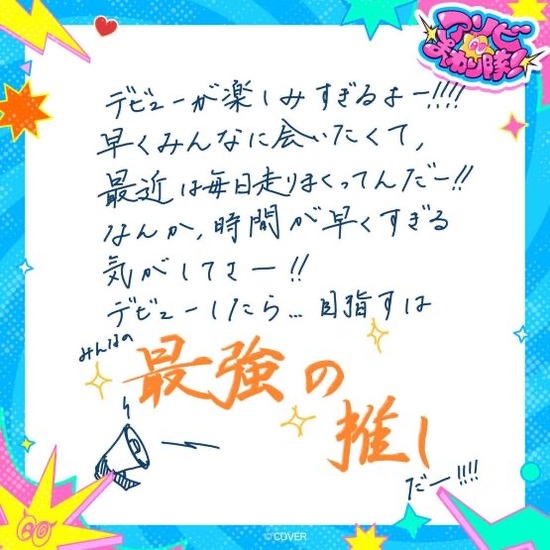 アソビまわり隊!
デビューが楽しみすぎるよー!!!!
早くみんなに会いたくて,
最近は毎日走りまくってんだー!!
なんか,時間が早くすぎる
気がしてさー!!
デビューしたら...目指すは
みんなの
最強の
推し
だー!!!!
©COVER